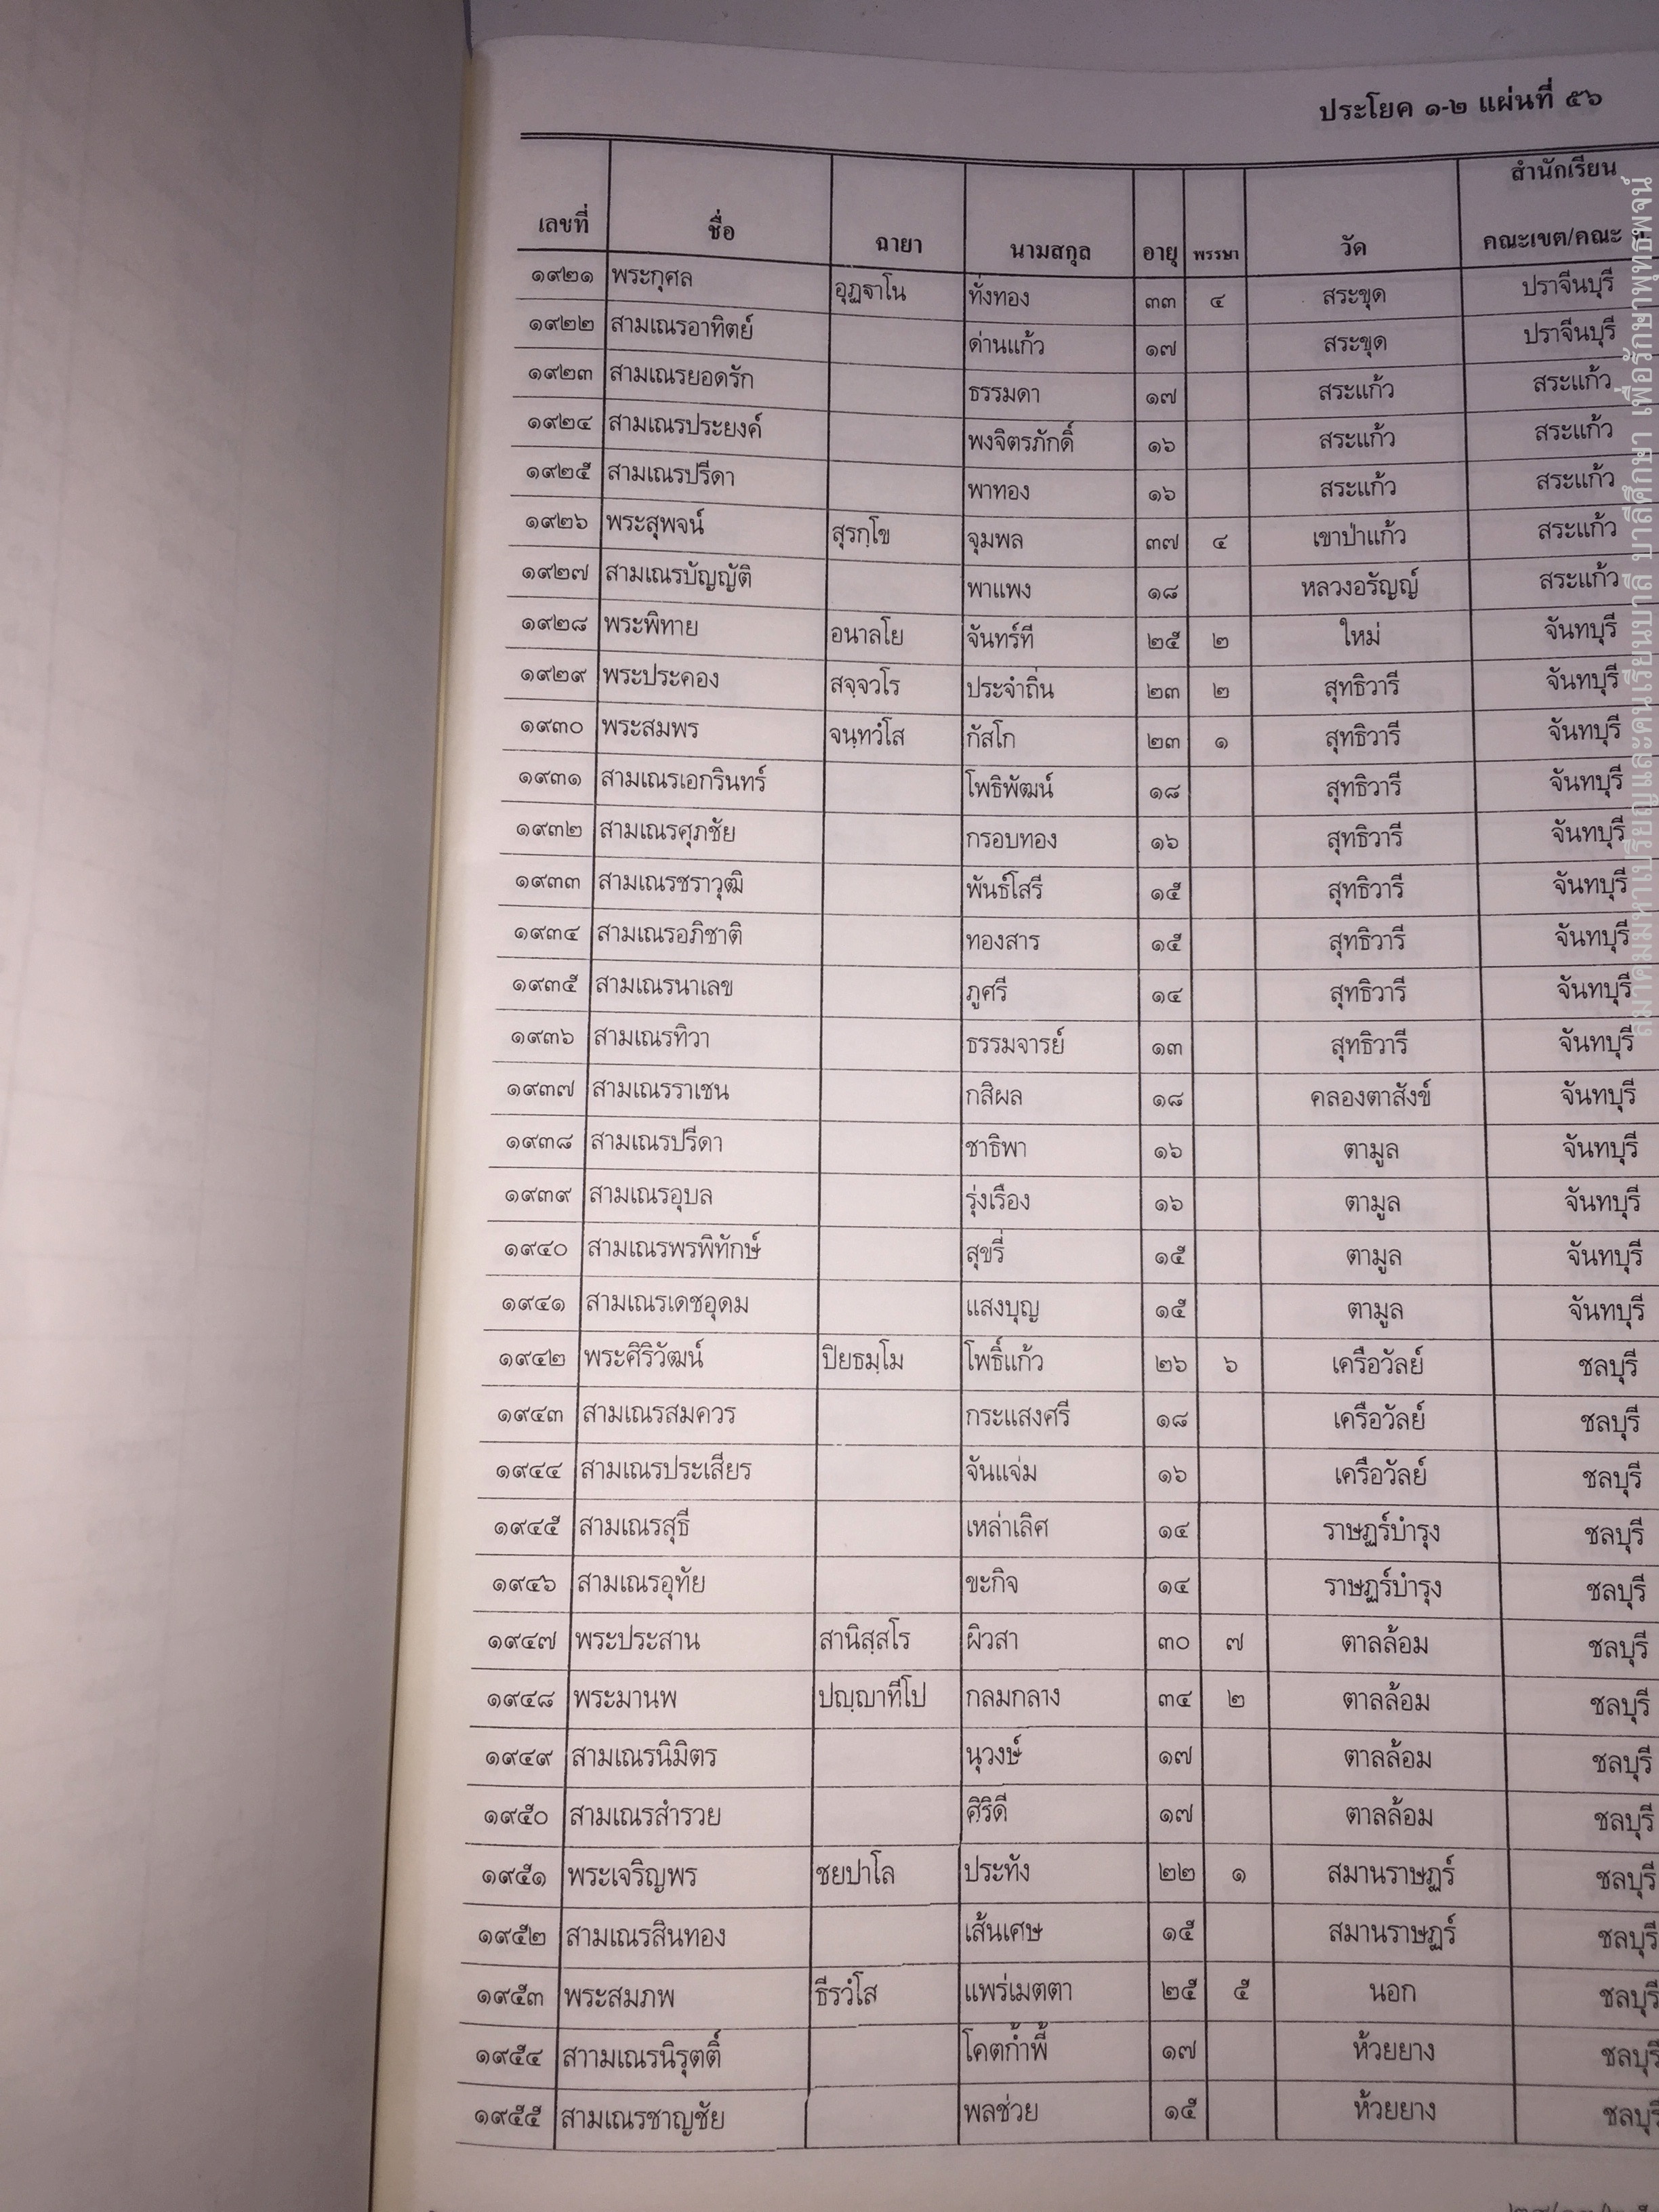 ประโยค ๑-๒ แผ่นที่ ๕๖
เลขที่ ชื่อ ฉายา นามสกุล อายุ พรรษา วัด สำนักเรียน คณะเขต/คณะ
๑๙๒๑ พระกุศล อุฏฺฐาโน ทั่งทอง ๓๓ ๔ สระขุด ปราจีนบุรี
๑๙๒๒ สามเณรอาทิตย์ ด่านแก้ว ๑๗ สระขุด ปราจีนบุรี
๑๙๒๓ สามเณรยอดรัก ธรรมดา ๑๗ สระแก้ว สระแก้ว
๑๙๒๔ สามเณรประยงค์ พงจิตรภักดิ์ ๑๖ สระแก้ว สระแก้ว
๑๙๒๕ สามเณรปรีดา พาทอง ๑๖ สระแก้ว สระแก้ว
๑๙๒๖ พระสุพจน์ สุรกฺโข จุมพล ๓๗ ๔ เขาป่าแก้ว สระแก้ว
๑๙๒๗ สามเณรบัญญัติ พาแพง ๑๘ หลวงอรัญญ์ สระแก้ว
๑๙๒๘ พระพิทาย อนาลโย จันทร์ที ๒๕ ๒ ใหม่ จันทบุรี
๑๙๒๙ พระประคอง สจฺจวโร ประจำถิ่น ๒๓ ๒ สุทธิวารี จันทบุรี
๑๙๓๐ พระสมพร จนฺทวํโส กัสโก ๒๓ ๑ สุทธิวารี จันทบุรี
๑๙๓๑ สามเณรเอกรินทร์ โพธิพัฒน์ ๑๘ สุทธิวารี จันทบุรี
๑๙๓๒ สามเณรศุภชัย กรอบทอง ๑๖ สุทธิวารี จันทบุรี
๑๙๓๓ สามเณรชราวุฒิ พันธ์โสรี ๑๕ สุทธิวารี จันทบุรี
๑๙๓๔ สามเณรอภิชาติ ทองสาร ๑๕ สุทธิวารี จันทบุรี
๑๙๓๕ สามเณรนาเลข ภูศรี ๑๔ สุทธิวารี จันทบุรี
๑๙๓๖ สามเณรทิวา ธรรมจารย์ ๑๓ สุทธิวารี จันทบุรี
๑๙๓๗ สามเณรราเชน กสิผล ๑๘ คลองตาสังข์ จันทบุรี
๑๙๓๘ สามเณรปรีดา ชาธิพา ๑๖ ตามูล จันทบุรี
๑๙๓๙ สามเณรอุบล รุ่งเรือง ๑๖ ตามูล จันทบุรี
๑๙๔๐ สามเณรพรพิทักษ์ สุขรี่ ๑๕ ตามูล จันทบุรี
๑๙๔๑ สามเณรเดชอุดม แสงบุญ ๑๕ ตามูล จันทบุรี
๑๙๔๒ พระศิริวัฒน์ ปิยธมฺโม โพธิ์แก้ว ๒๖ ๖ เครือวัลย์ ชลบุรี
๑๙๔๓ สามเณรสมควร กระแสงศรี ๑๘ เครือวัลย์ ชลบุรี
๑๙๔๔ สามเณรประเสียร จันแจ่ม ๑๖ เครือวัลย์ ชลบุรี
๑๙๔๕ สามเณรสุธี เหล่าเลิศ ๑๔ ราษฏร์บำรุง ชลบุรี
๑๙๔๖ สามเณรอุทัย ขะกิจ ๑๔ ราษฏร์บำรุง ชลบุรี
๑๙๔๗ พระประสาน สานิสฺสโร ผิวสา ๓๐ ๗ ตาลล้อม ชลบุรี
๑๙๔๘ พระมานพ ปญฺญาทีโป กลมกลาง ๓๔ ๒ ตาลล้อม ชลบุรี
๑๙๔๙ สามเณรนิมิตร นุวงษ์ ๑๗ ตาลล้อม ชลบุรี
๑๙๕๐ สามเณรสำรวย ศิริดี ๑๗ ตาลล้อม ชลบุรี
๑๙๕๑ พระเจริญพร ชยปาโล ประทัง ๒๒ ๑ สมานราษฏร์ ชลบุรี
๑๙๕๒ สามเณรสินทอง เส้นเศษ ๑๕ สมานราษฏร์ ชลบุรี
๑๙๕๓ พระสมภพ ธีรวํโส แพร่เมตตา ๒๕ ๕ นอก ชลบุรี
๑๙๕๔ สาามเณรนิรุตติ์ โคตก๋ำพี้ ๑๗ ห้วยยาง ชลบุรี
๑๙๕๕ สามเณรชาญชัย พลช่วย ๑๕ ห้วยยาง ชลบุรี
สมาคมมหาเปรียญและคนเรียนบาลี บาลีศึกษา เพื่อรักษาพุทธพจน์